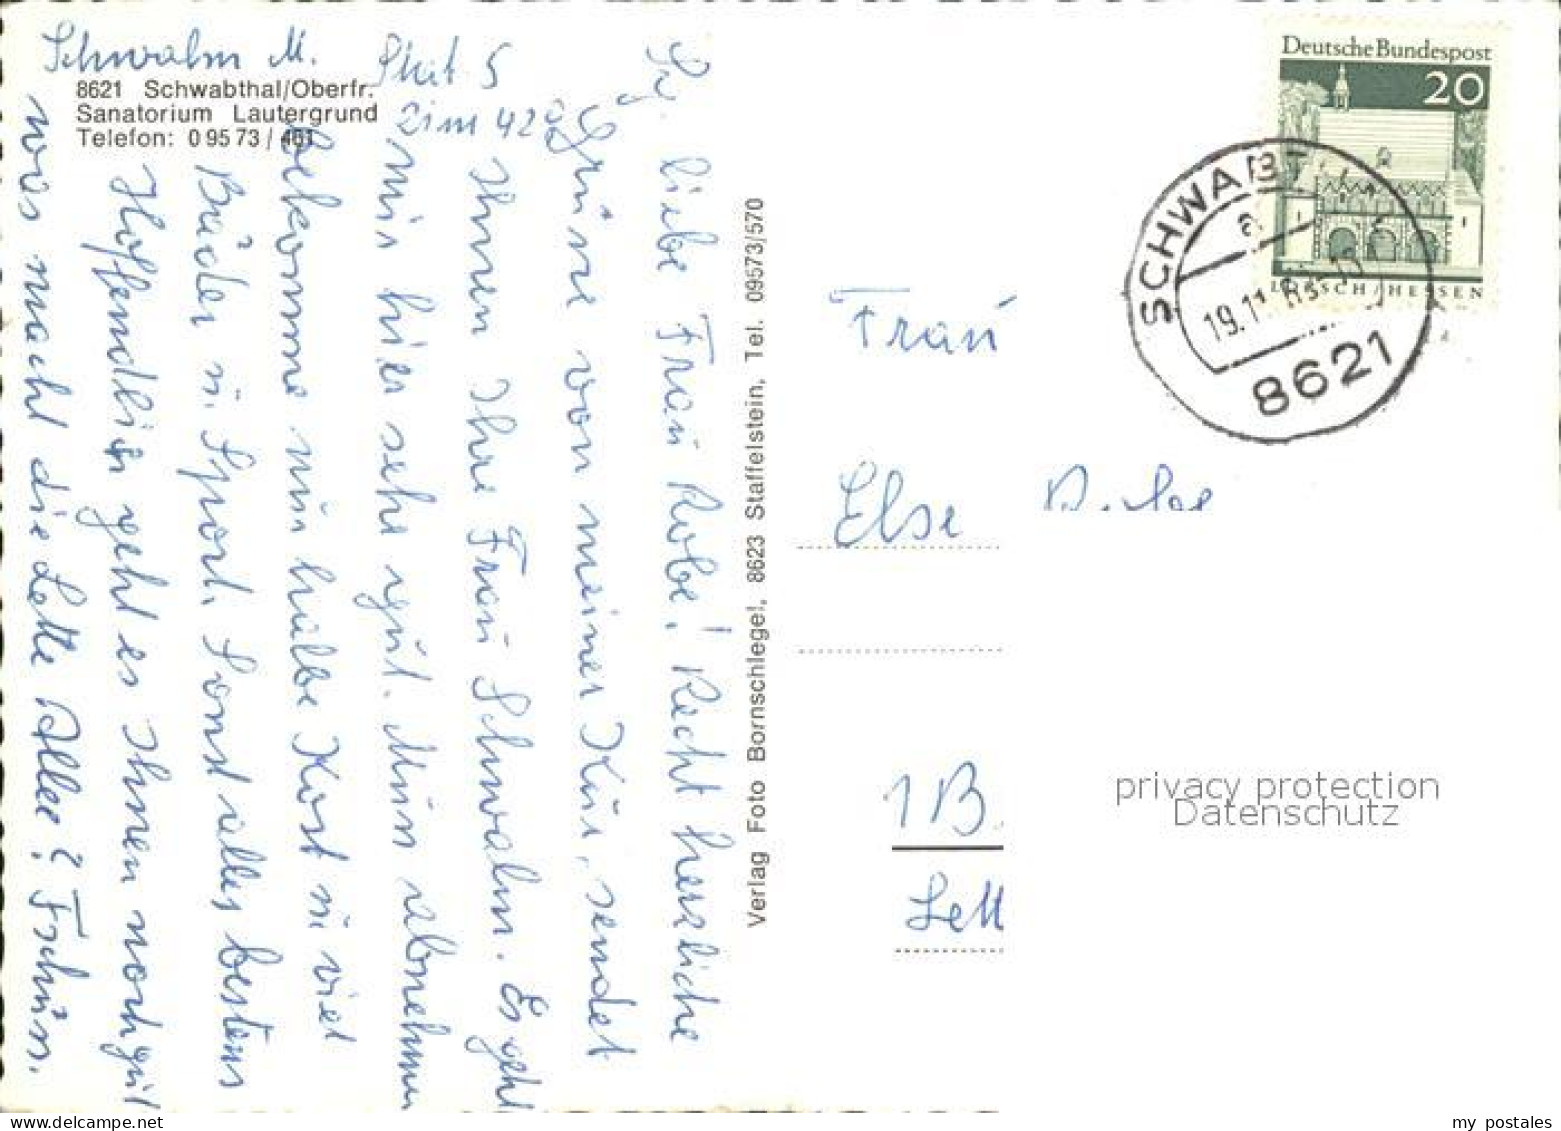 Schwalm M.
Stat. 5
Zim 420
8621 Schwabthal/Oberfr.
Sanatorium Lautergrund
Telefon: 0 95 73 / 461
liebe Frau Robe! Recht herzliche
Grüße von meiner Kur, sendet
Ihnen Ihre Frau Schwalm. Es geht
mir hier sehr gut. Muss abnehmen
bekomme nur halbe Kost u. viel
Bäder u. Sport. Sonst alles bestens
Hoffendlich geht es Ihnen noch gut
was macht die Lette Allee? Tschüss.
Verlag Foto Bornschlegel, 8623 Staffelstein, Tel. 09573/570
Deutsche Bundespost
20
LORSCH/HESSEN
SCHWABTHAL
a
8621
Frau
Else
1 B
Lett
privacy protection
Datenschutz
my postales